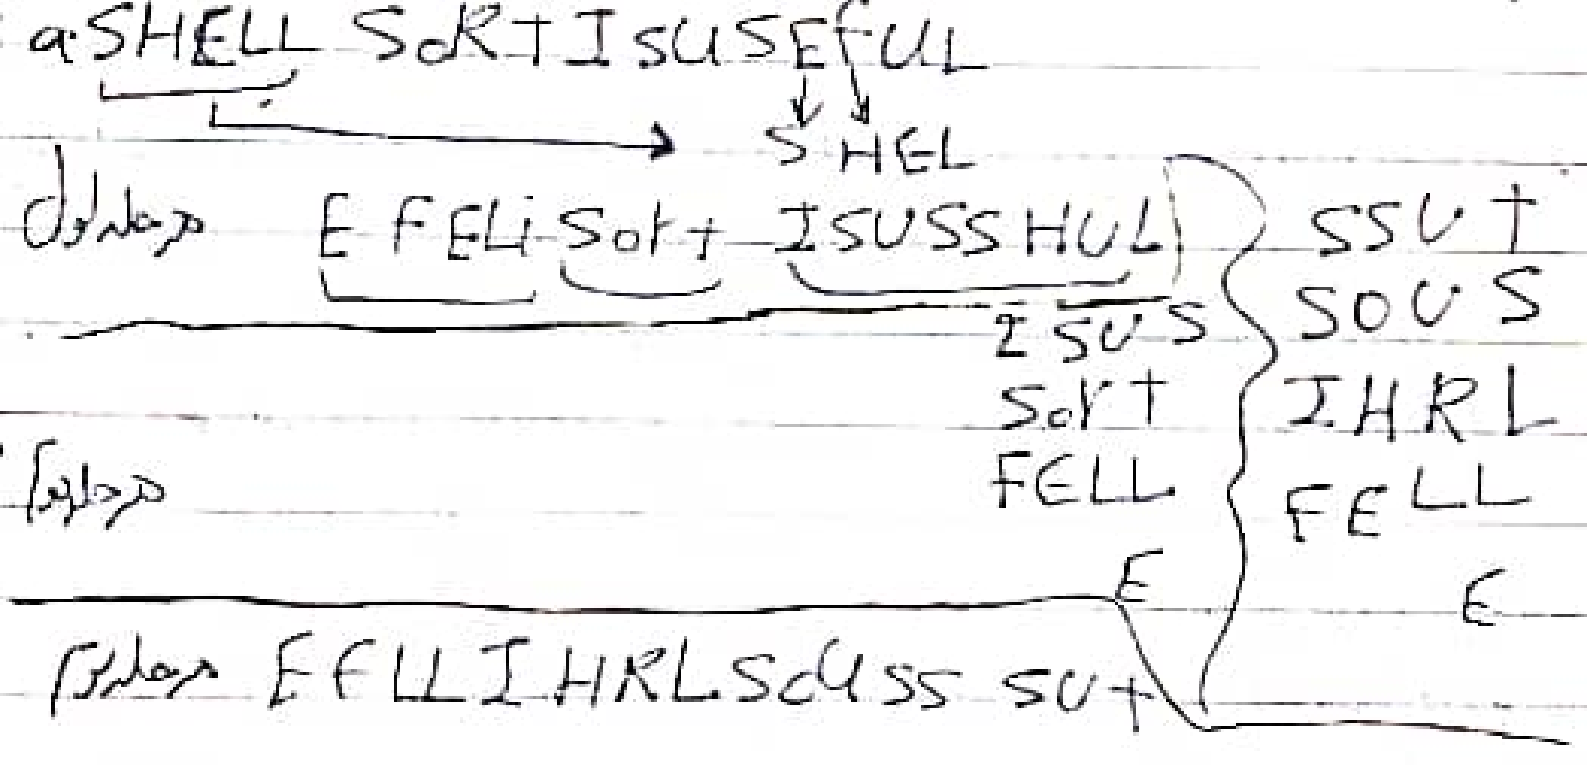 a. SHELL SORT IS USEFUL
S HEL
مرحله اول E FELL Sort ISUSSHUL
SSUT
ISUS SOUS
Sort IHRL
FELL FELL
مرحله دوم
E E
مرحله سوم EFLLIHRLSOUSS SUT